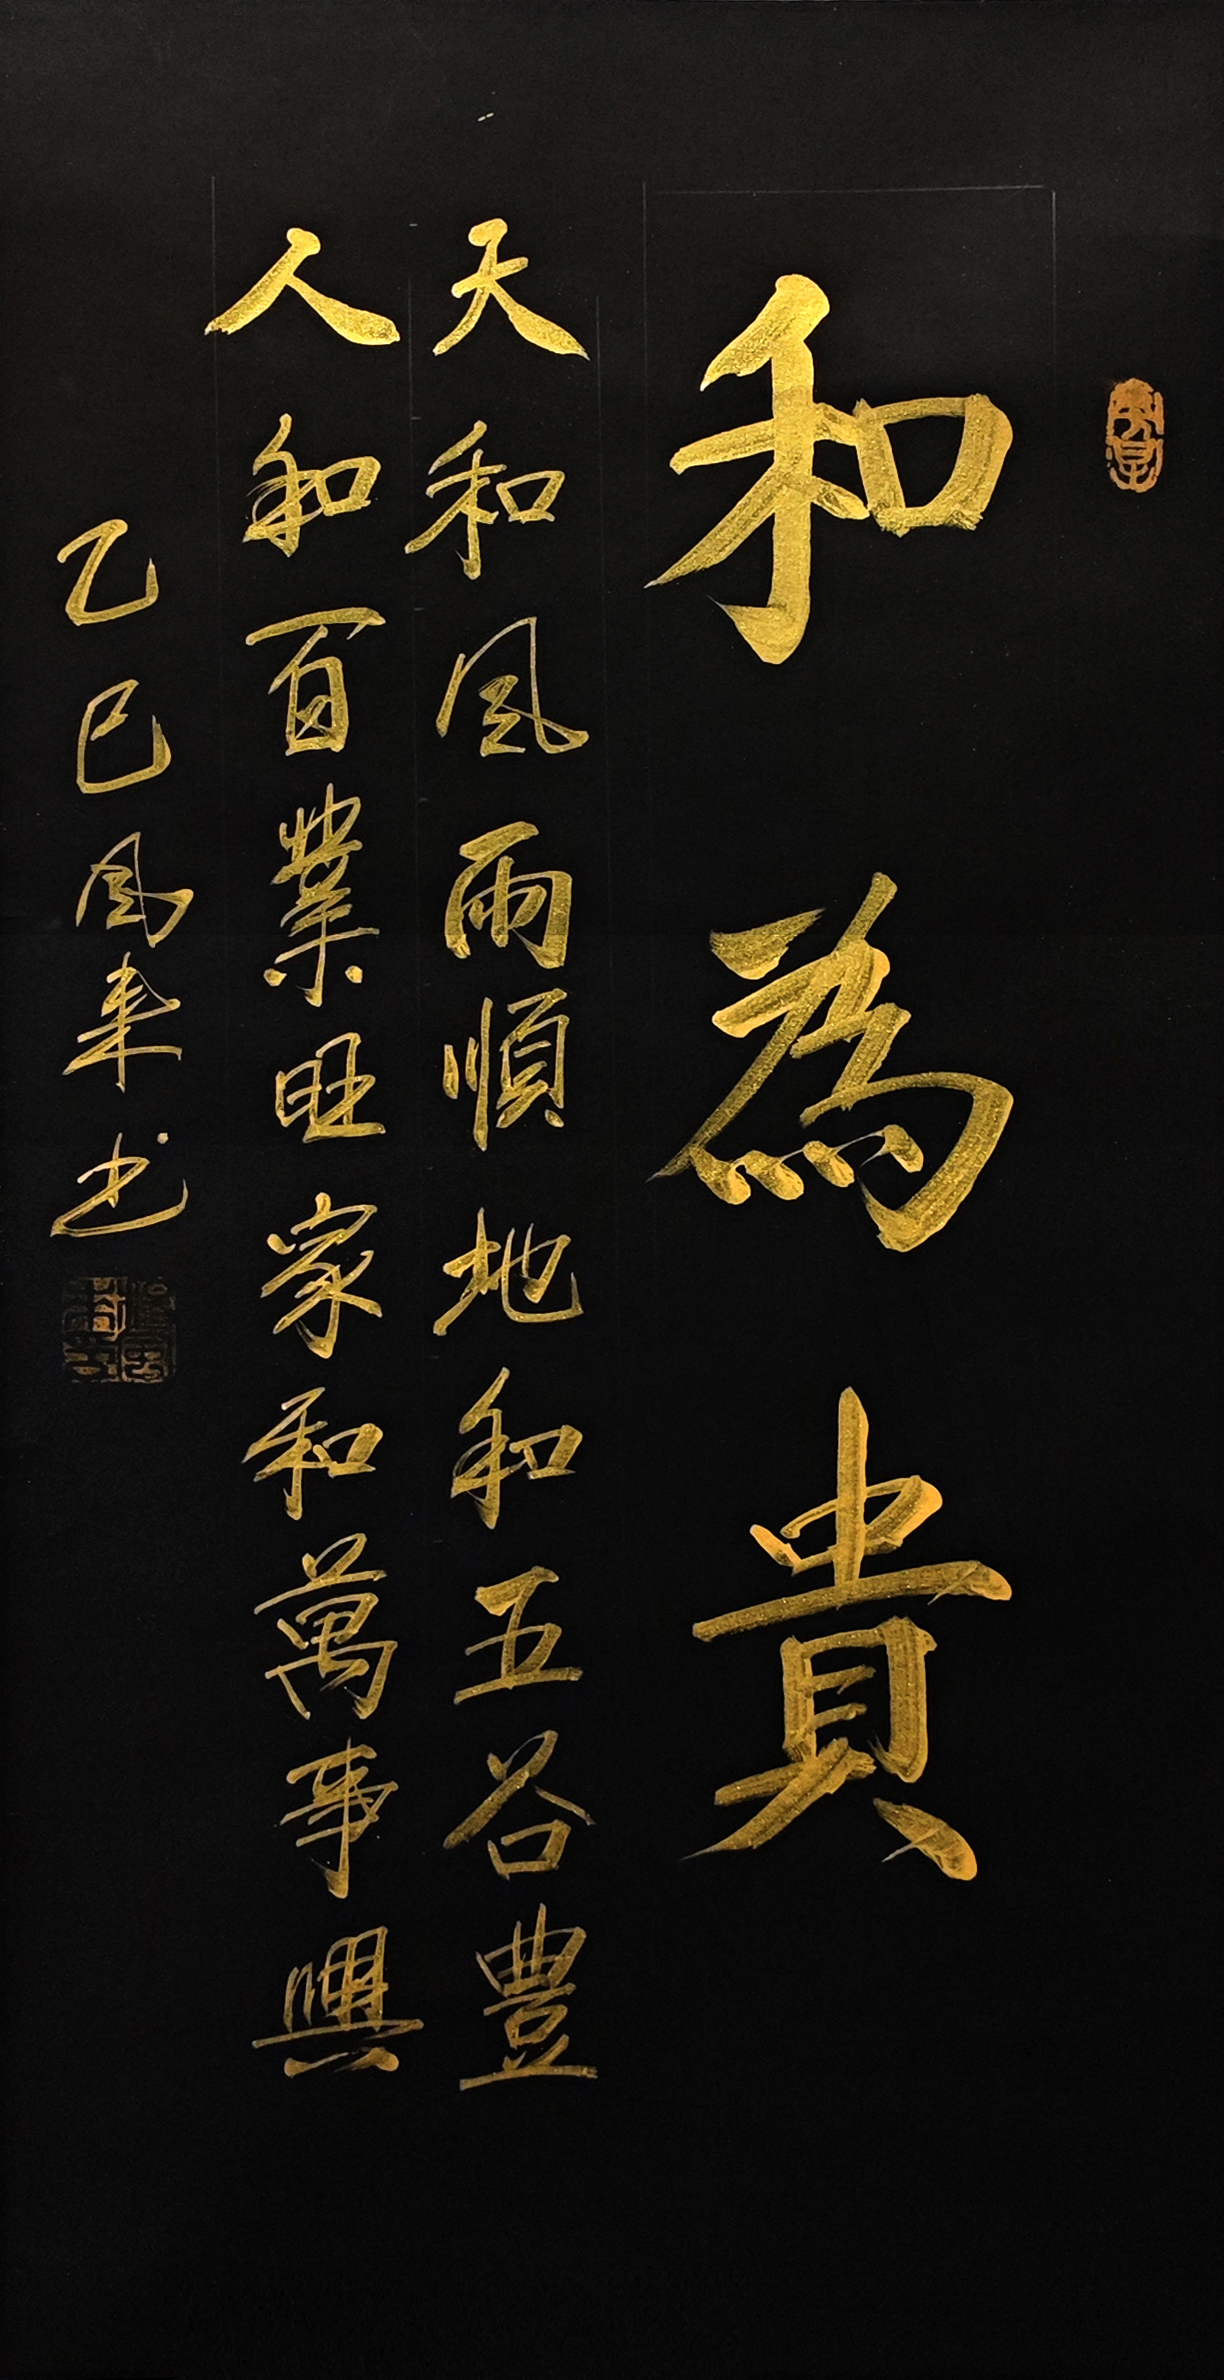 和為貴
天和風雨順地和五谷豐
人和百業旺家和萬事興
乙巳風來书